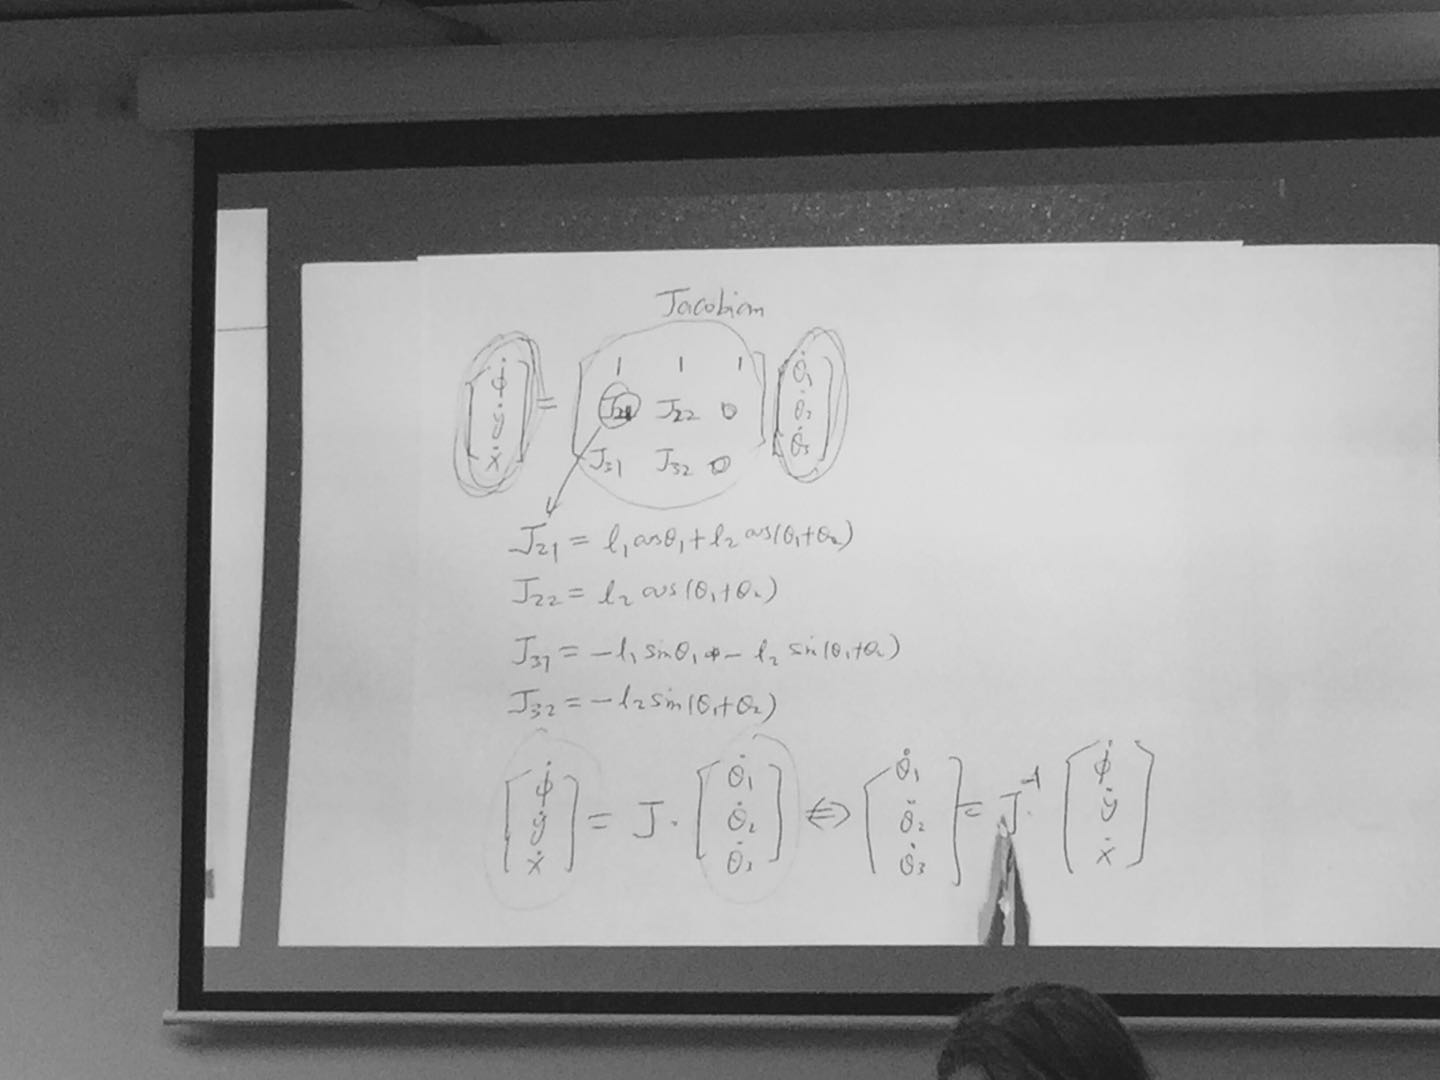 Jacobian
[φ̇ ẏ ẋ] = [1 1 1; J21 J22 0; J31 J32 0] [θ̇1 θ̇2 θ̇3]
J21 = l1 cosθ1 + l2 cos(θ1+θ2)
J22 = l2 cos(θ1+θ2)
J31 = -l1 sinθ1 - l2 sin(θ1+θ2)
J32 = -l2 sin(θ1+θ2)
[φ̇ ẏ ẋ] = J · [θ̇1 θ̇2 θ̇3] ⇔ [θ̇1 θ̇2 θ̇3] = J⁻¹ · [φ̇ ẏ ẋ]